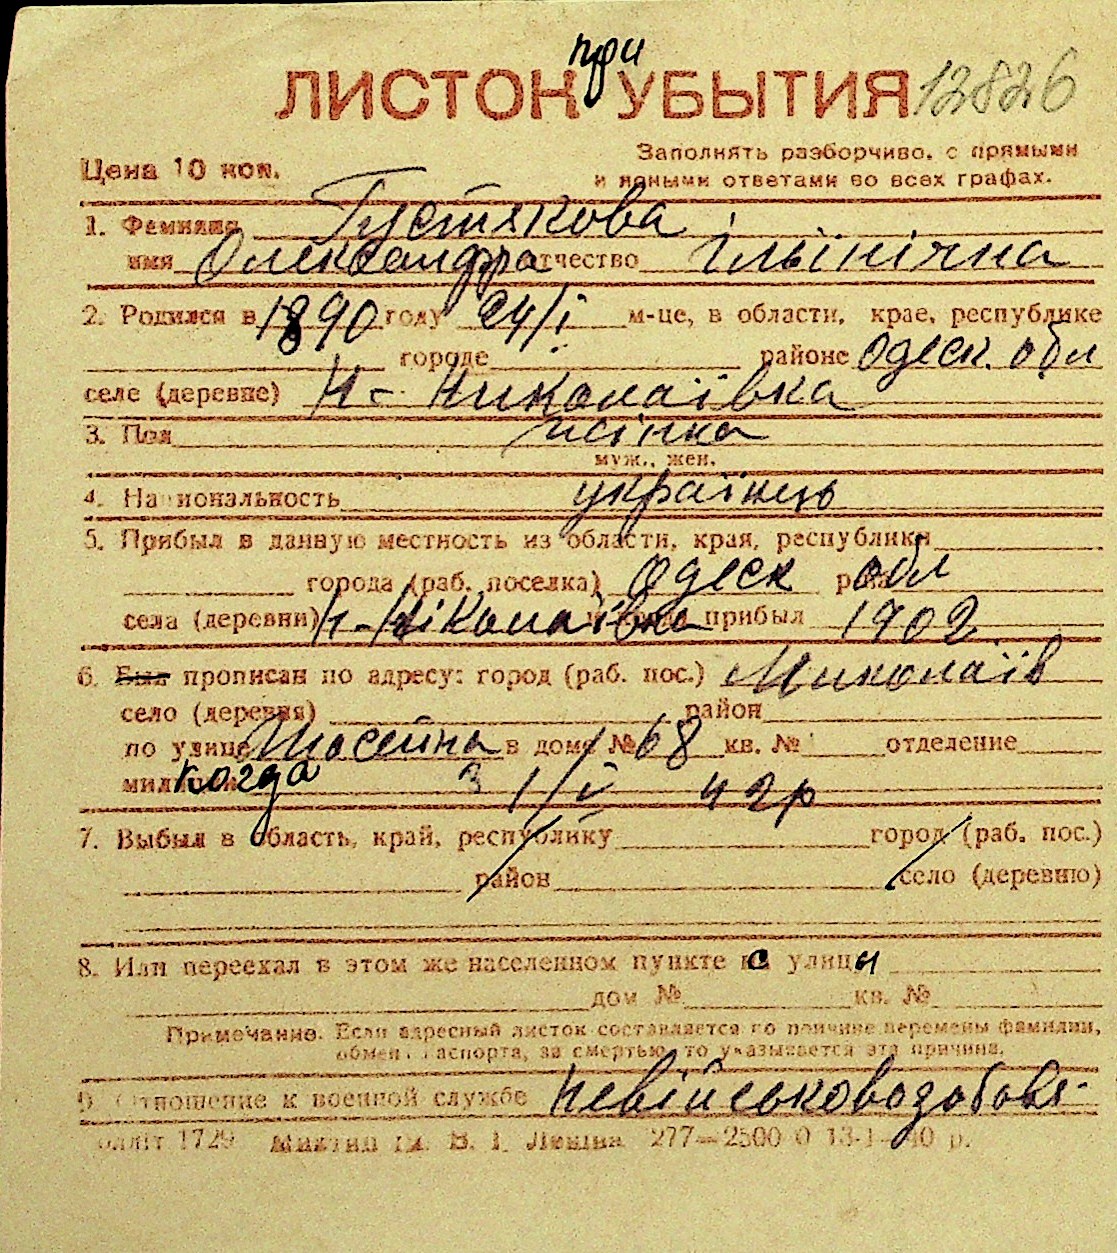 при
ЛИСТОК УБЫТИЯ 12826
Цена 10 коп.
Заполнять разборчиво, с прямыми
и ясными ответами во всех графах.
1. Фамилия Густякова
имя Олександра отчество Ільїнічна
2. Родился в 1890 году 24/I м-це, в области, крае, республике
городе районе Одеск. обл
селе (деревне) Н-Николаївка
3. Пол жінка
муж., жен.
4. Национальность українець
5. Прибыл в данную местность из области, края, республики
города (раб. поселка) Одеск обл
села (деревни) Н-Ніколаївка прибыл 1902
6. Был прописан по адресу: город (раб. пос.) Миколаїв
село (деревня) район
по улице Шосейна в доме № 68 кв. № отделение
когда з 1/V 42р
7. Выбыл в область, край, республику город (раб. пос.)
район село (деревню)
8. Или переехал в этом же населенном пункте с улицы
дом № кв. №
Примечание. Если адресный листок составляется по причине перемены фамилии,
обмена паспорта, за смертью, то указывается эта причина.
9. Отношение к военной службе невійськовозобовя-
1729 Миктип ім. В. І. Леніна 277—2500 0 13-1—40 р.